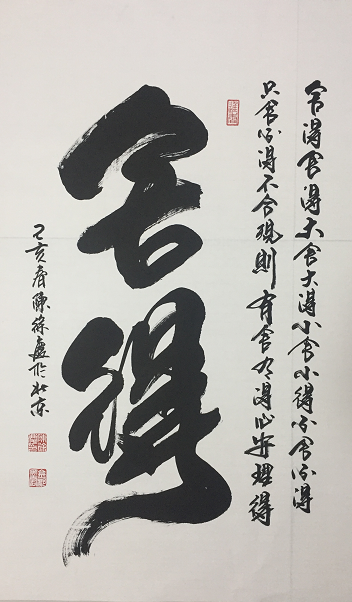 舍得舍得大舍大得小舍小得不舍不得
只舍不得不合規則有舍有得心安理得
舍得
己亥春陳於北京